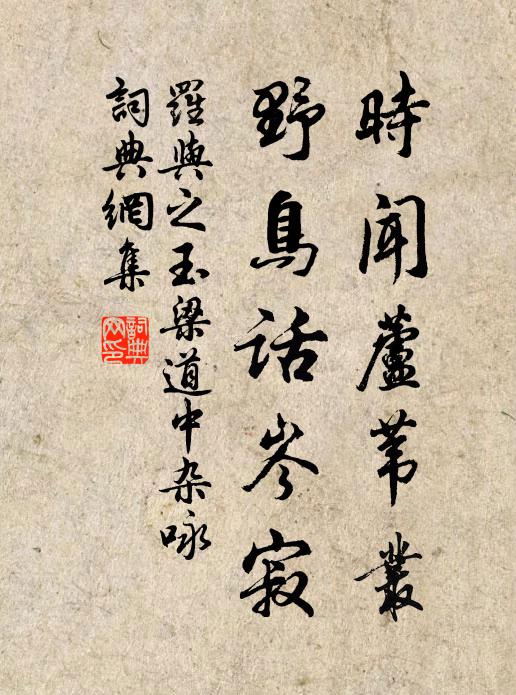 時聞蘆葦叢
野鳥話岑寂
羅與之玉梁道中杂咏
詞典網集
詞典網印